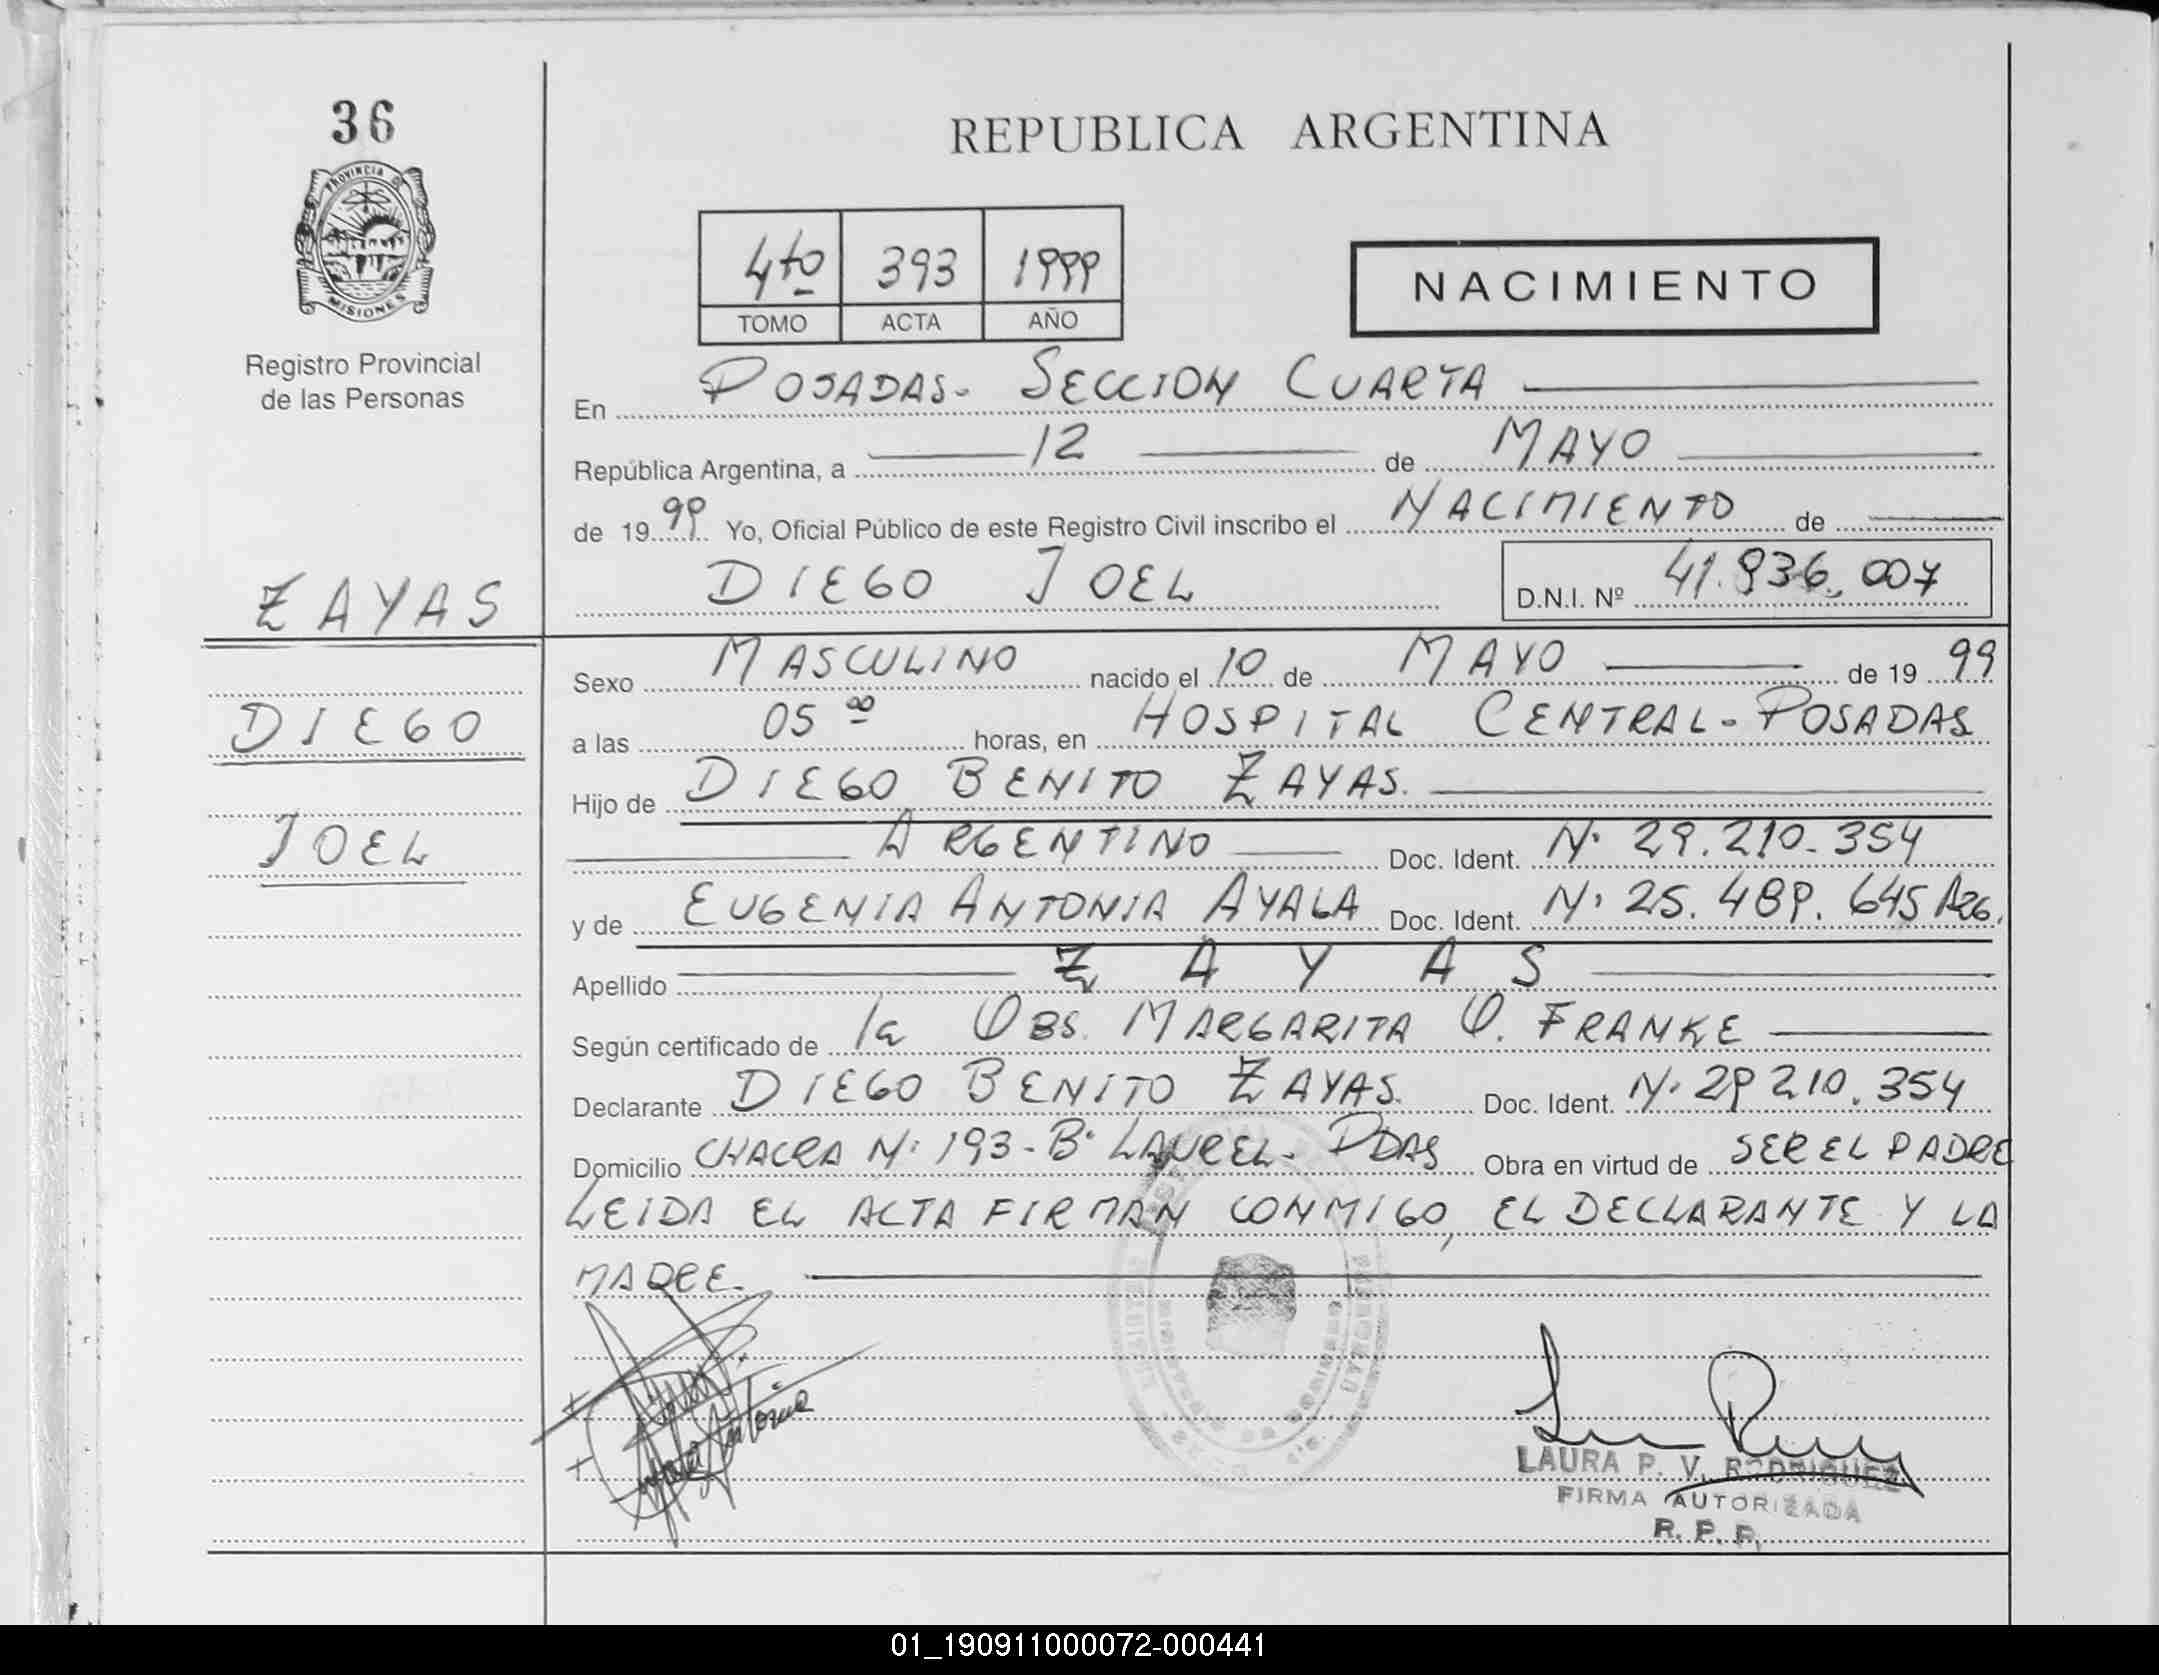 36
PROVINCIA DE
MISIONES
Registro Provincial
de las Personas
ZAYAS
DIEGO
JOEL
REPUBLICA ARGENTINA
4to 393 1999
TOMO ACTA AÑO
NACIMIENTO
En POSADAS- SECCION CUARTA
República Argentina, a 12 de MAYO
de 1999 Yo, Oficial Público de este Registro Civil inscribo el NACIMIENTO de
DIEGO JOEL D.N.I. Nº 41.936.007
Sexo MASCULINO nacido el 10 de MAYO de 1999
a las 05 00 horas, en HOSPITAL CENTRAL-POSADAS
Hijo de DIEGO BENITO ZAYAS.
ARGENTINO Doc. Ident. Nº 29.210.354
y de EUGENIA ANTONIA AYALA Doc. Ident. Nº 25.489.645 ARG.
Apellido ZAYAS
Según certificado de la OBS. MARGARITA O. FRANKE
Declarante DIEGO BENITO ZAYAS. Doc. Ident. Nº 29 210.354
Domicilio CHACRA Nº 193-Bº LAUREL- PDAS Obra en virtud de SER EL PADRE
LEIDA EL ACTA FIRMAN CONMIGO, EL DECLARANTE Y LA
MADRE.
Antonia
LAURA P. V. RODRIGUEZ
FIRMA AUTORIZADA
R. P. P.
01_190911000072-000441